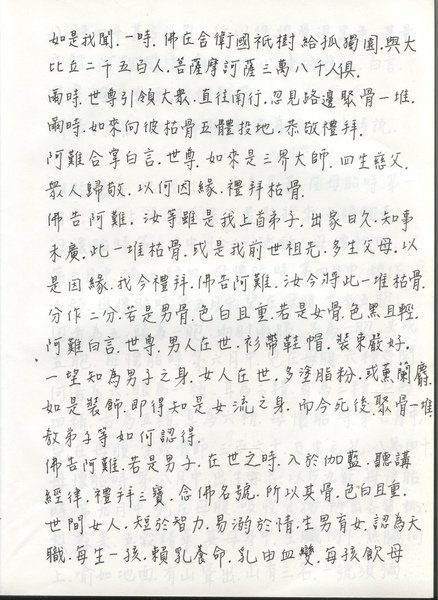 如是我聞．一時．佛在舍衛國祇樹給孤獨園．與大
比丘二千五百人．菩薩摩訶薩三萬八千人俱．
爾時．世尊引領大眾．直往南行．忽見路邊聚骨一堆．
爾時．如來向彼枯骨五體投地．恭敬禮拜．
阿難合掌白言．世尊．如來是三界大師．四生慈父．
眾人歸敬．以何因緣．禮拜枯骨．
佛告阿難．汝等雖是我上首弟子．出家日久．知事
未廣．此一堆枯骨．或是我前世祖先．多生父母．以
是因緣．我今禮拜．佛告阿難．汝今將此一堆枯骨．
分作二分．若是男骨．色白且重．若是女骨．色黑且輕．
阿難白言．世尊．男人在世．衫帶鞋帽．裝束嚴好．
一望知為男子之身．女人在世．多塗脂粉．或熏蘭麝．
如是裝飾．即得知是女流之身．而今死後．聚骨一堆．
教弟子等如何認得．
佛告阿難．若是男子．在世之時．入於伽藍．聽講
經律．禮拜三寶．念佛名號．所以其骨．色白且重．
世間女人．短於智力．易溺於情．生男育女．認為天
職．每生一孩．賴乳養命．乳由血變．每孩飲母